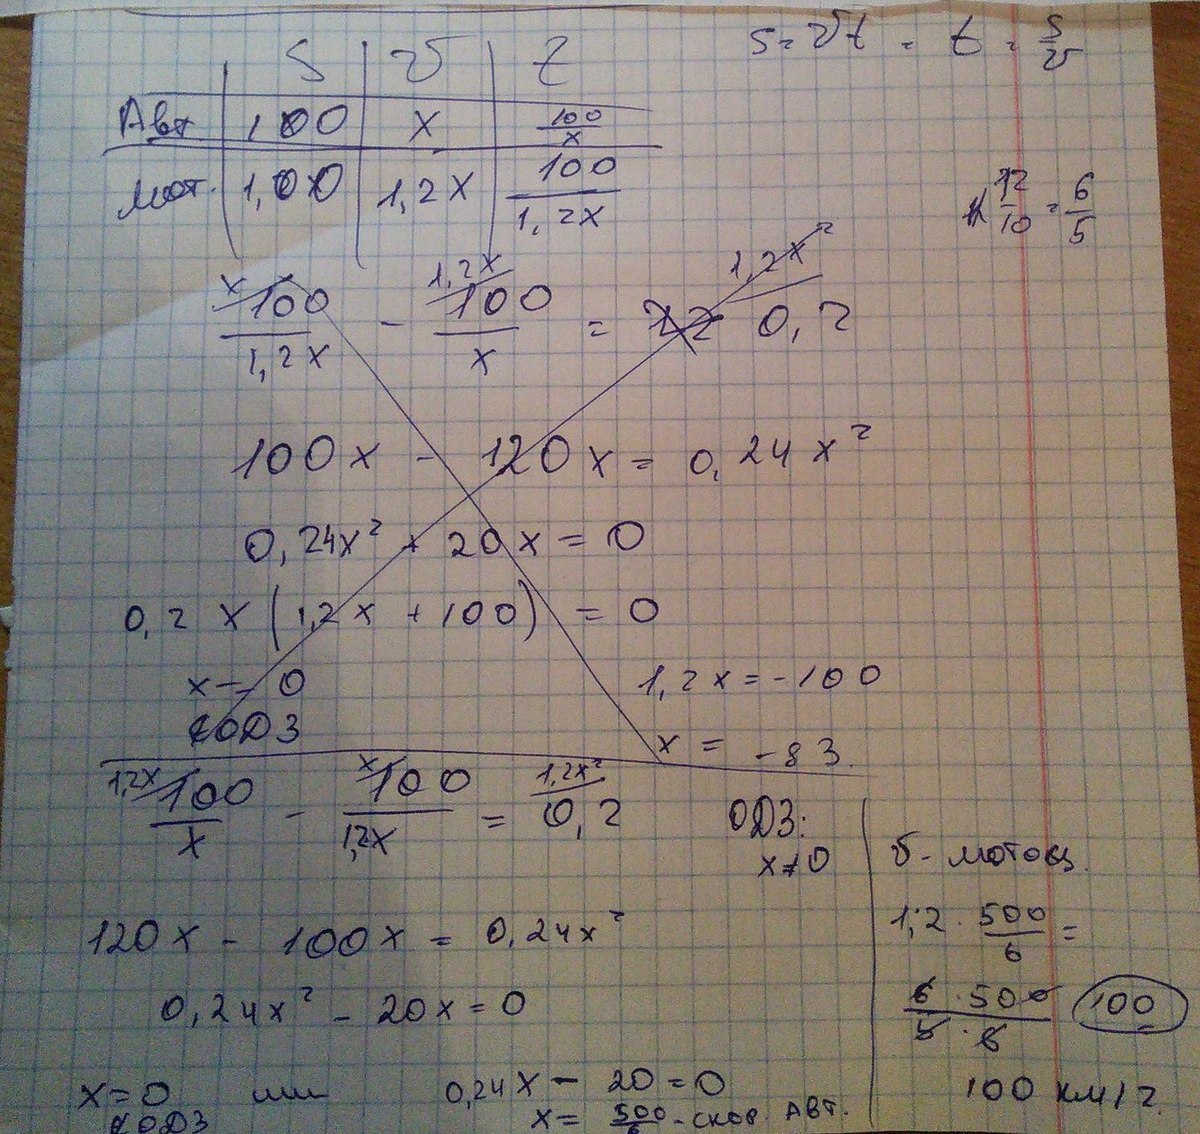 S v t
S = vt = t = S/v
Авт 100 x 100/x
мот. 100 1,2x 100/1,2x
12/10 = 6/5
x 100/1,2x - 1,2x 100/x = 0,2 1,2x²
100x - 120x = 0,24x²
0,24x² + 20x = 0
0,2x(1,2x + 100) = 0
x = 0 1,2x = -100
∉ОДЗ x = -83.
1,2x 100/x - x 100/1,2x = 0,2 1,2x²
ОДЗ:
x≠0
120x - 100x = 0,24x²
0,24x² - 20x = 0
x=0 или 0,24x - 20 = 0
∉ОДЗ x = 500/6 - скор. авт.
v - мотоц.
1,2 · 500/6 =
6 · 500/5 · 6 100
100 км/ч.